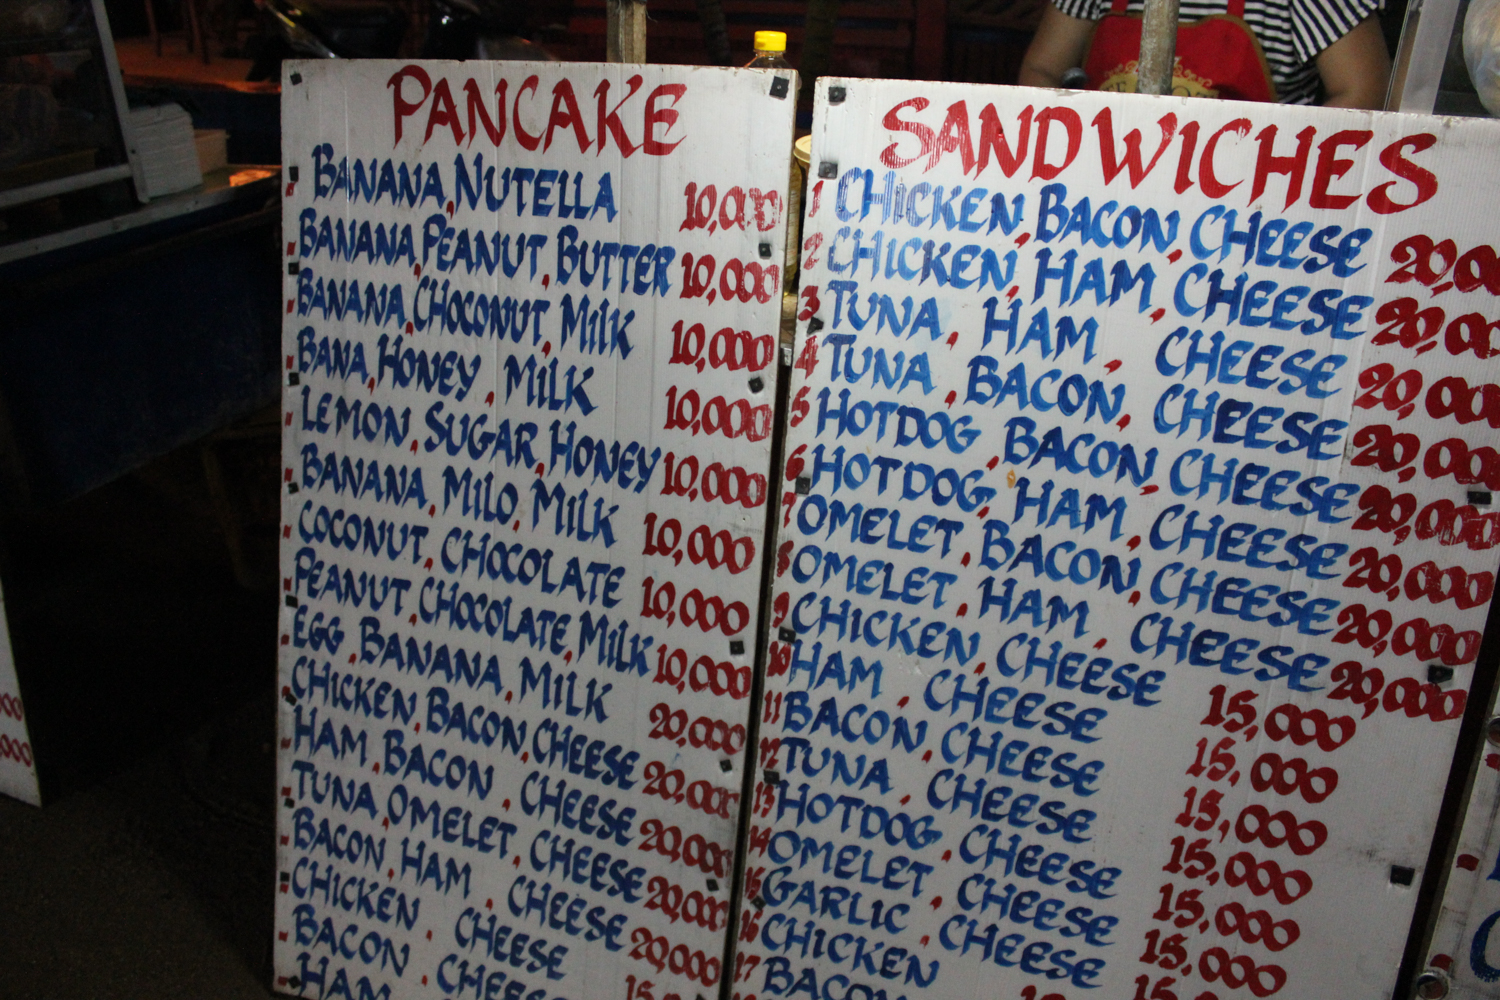 PANCAKE
BANANA, NUTELLA 10,000
BANANA, PEANUT, BUTTER 10,000
BANANA, CHOCONUT, MILK 10,000
BANA, HONEY, MILK 10,000
LEMON, SUGAR, HONEY 10,000
BANANA, MILO, MILK 10,000
COCONUT, CHOCOLATE 10,000
PEANUT, CHOCOLATE, MILK 10,000
EGG, BANANA, MILK 20,000
CHICKEN, BACON, CHEESE 20,000
HAM, BACON, CHEESE 20,000
TUNA, OMELET, CHEESE 20,000
BACON, HAM, CHEESE 20,000
CHICKEN, CHEESE
BACON, CHEESE
HAM
SANDWICHES
1 CHICKEN, BACON, CHEESE 20,00
2 CHICKEN, HAM, CHEESE 20,00
3 TUNA, HAM, CHEESE 20,000
4 TUNA, BACON, CHEESE 20,000
5 HOTDOG, BACON, CHEESE 20,000
6 HOTDOG, HAM, CHEESE 20,000
7 OMELET, BACON, CHEESE 20,000
8 OMELET, HAM, CHEESE 20,000
9 CHICKEN, CHEESE 15,000
10 HAM, CHEESE 15,000
11 BACON, CHEESE 15,000
12 TUNA, CHEESE 15,000
13 HOTDOG, CHEESE 15,000
14 OMELET, CHEESE 15,000
15 GARLIC, CHEESE
16 CHICKEN
17 BACON